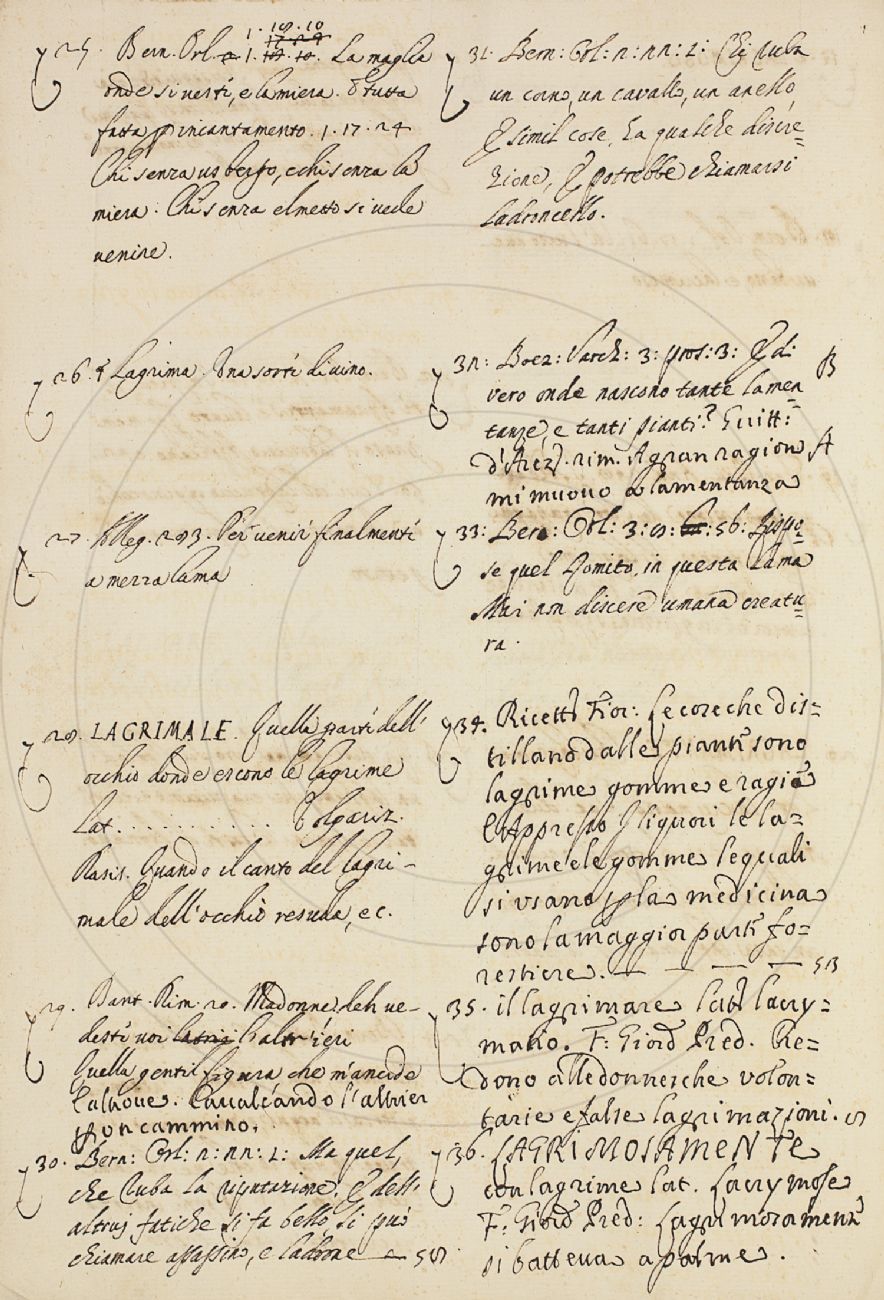 25. Bern. Orl. 1. 1. 18. 10. La maglia
onde si vesti, e la miera. È tutta
fatta p incantamento. 1. 17. 24
Chi senza usbergo, e chi senza la
miera: Chi senza elmetto si vede
venire.
26. Lagrima. Una sorte di vino.
27. Alleg. 293. Per venir finalmente
a mezza lama
28. LAGRIMALE. Quella parte dell'
occhio donde escono le lagrime
Lat. . . . . . . . . . . Volgariz.
Rasis. Quando il canto del lagri-
male dell'occhio resuda, ec.
29. Dant. Rim. 20. Madonne, deh ve-
deste voi l'altr'ieri
Quella gentil figura che m'ancide
Cavalcando l'altrier
p un cammino.
30. Bern: Orl: 2: 22: 1: Ma quel,
che ruba la riputazione, E dell'
altrui fatiche si fa bello, Si può
chiamare assassino, e ladrone
31. Bern: Orl: 2: 22: 2: Chi ruba
un corno, un cavallo, un anello
E simil cose, ha qualche discre=
zione, E potrebbe chiamarsi
ladroncello.
32: Boez: Varch: 3: pros: 3: E di B
vero onde nascono tante lamen=
tanze, e tanti pianti? Guitt:
d'Arez. rim. A gran ragion A
mi muovo a lamentanza
33: Bern: Orl: 3: 56: Rispo=
se quel Romito, in questa lama
Mai non discere umana creatu=
ra.
34. Ricett. Fior: Le cose che dis=
tillano dalle piante sono
lagrime gomme e ragie
E Appresso I liquori le la=
grime e le gomme le quali
si usano p la medicina
sono la maggior parte fo=
restiere.
35. il lagrimare lat. lacry=
matio. F: Giord Pred. Re=
dono alle donnesche volon=
tarie e false lagrimazioni.
36. LAGRIMOSAMENTE
con lagrime lat. Lacrymose
F. Giord Pred: Lagrimosamente
si batteva a palme.